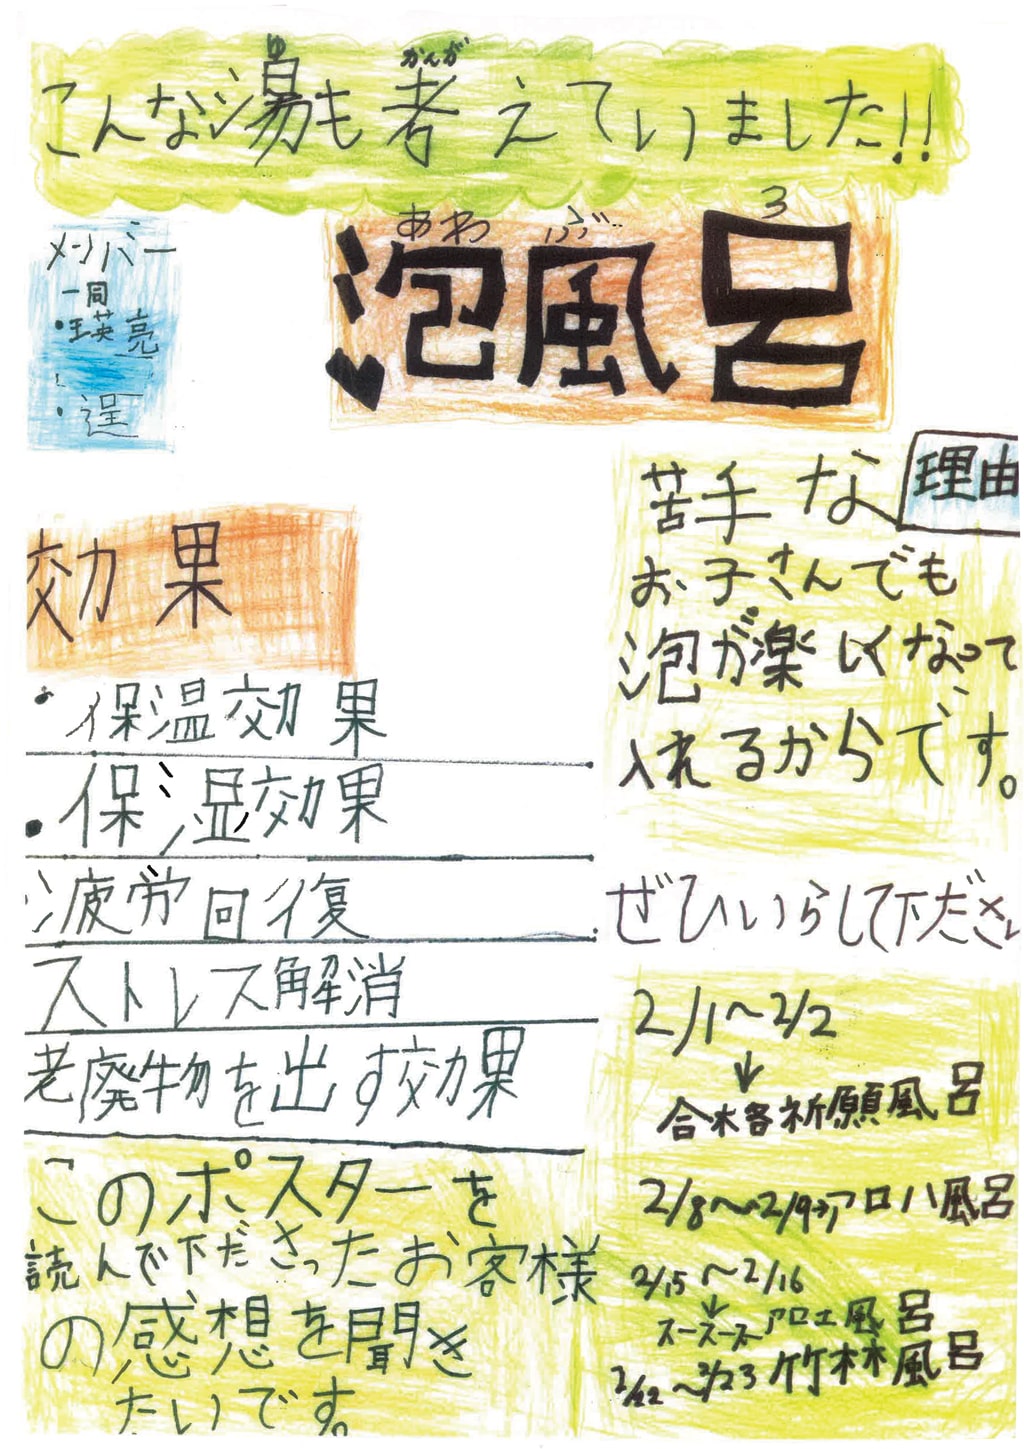 こんな湯も考えていました!!
ゆ
かんが
泡風呂
あわ ぶ ろ
メンバー
一同
・瑛亮
・逞
理由
苦手な
お子さんでも
泡が楽しくなって
入れるからです。
効果
・保温効果
・保湿効果
疲労回復
ストレス解消
老廃物を出す効果
ぜひいらして下ださい
2/1〜2/2
↓
合格祈願風呂
2/8〜2/9→アロハ風呂
2/15〜2/16
↓
スースースーアロエ風呂
2/22〜2/23竹林風呂
このポスターを
読んで下ださったお客様
の感想を聞き
たいです。